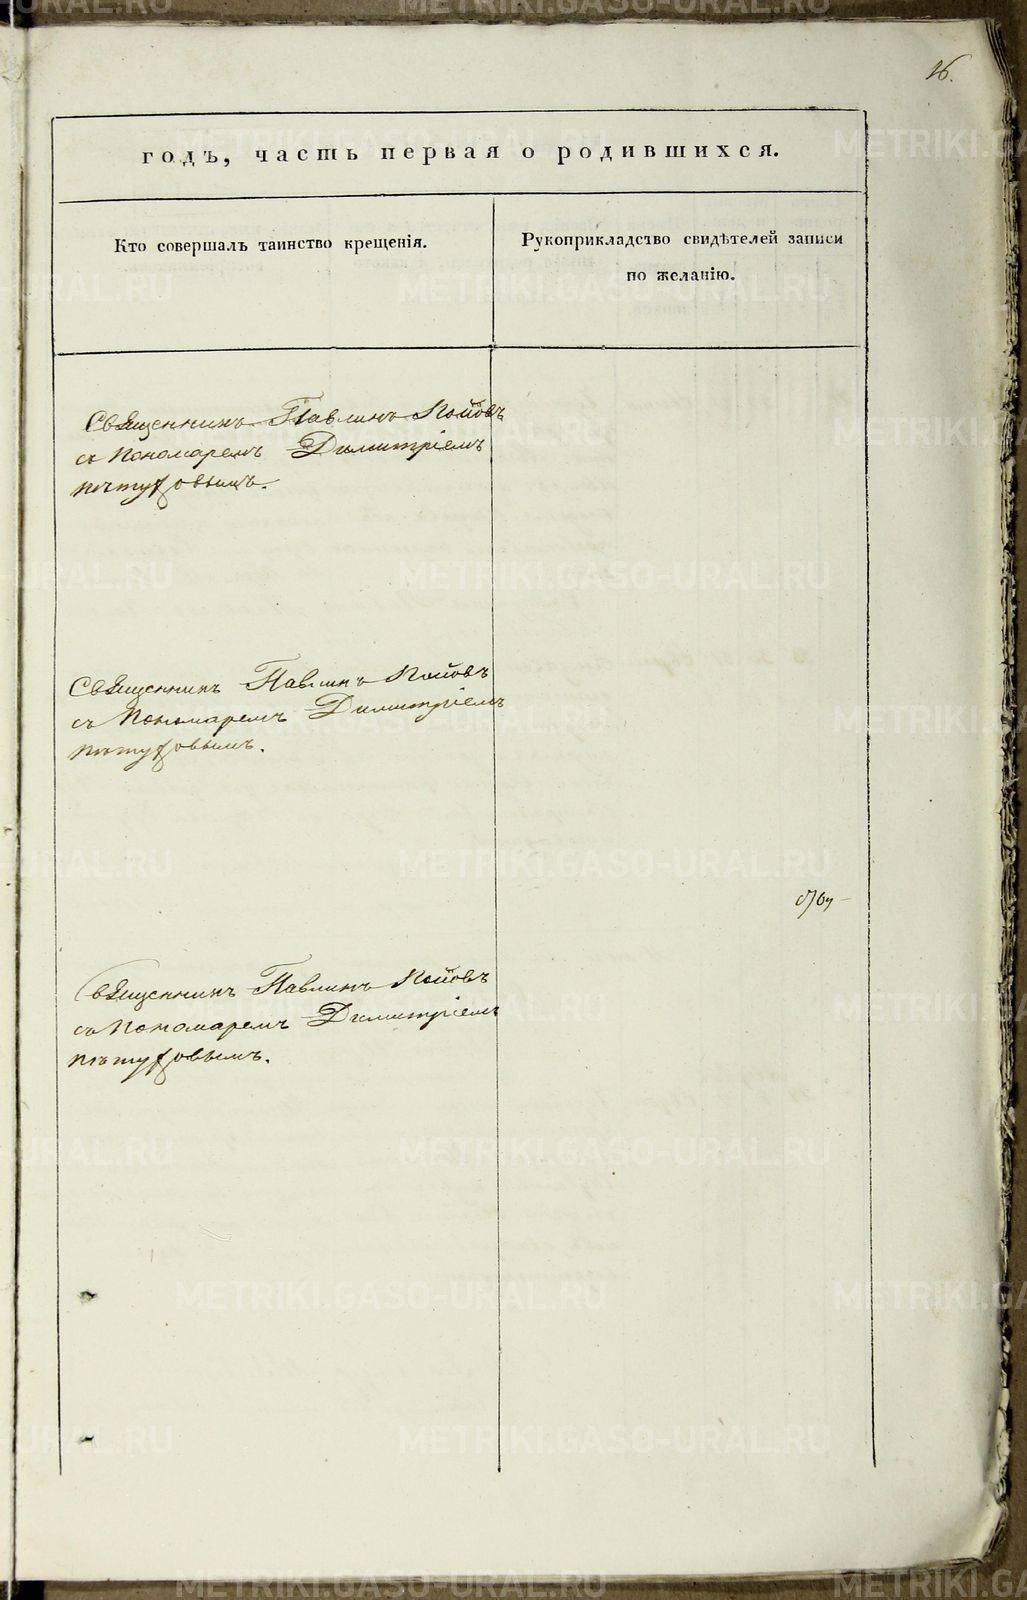 16.
годъ, часть первая о родившихся.
Кто совершалъ таинство крещенія.
Рукоприкладство свидѣтелей записи
по желанію.
Священникъ Павлинъ Поповъ
съ Пономаремъ Димитріемъ
Пѣтуховымъ.
Священникъ Павлинъ Поповъ
съ Пономаремъ Димитріемъ
Пѣтуховымъ.
Священникъ Павлинъ Поповъ
съ Пономаремъ Димитріемъ
Пѣтуховымъ.
METRIKI.GASO-URAL.RU